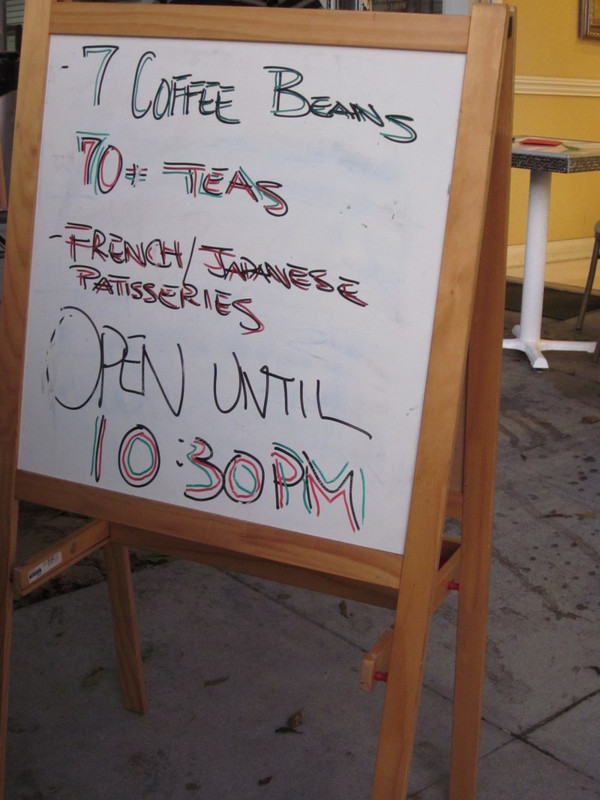 - 7 COFFEE BEANS
70+ TEAS
- FRENCH/JAPANESE
PATISSERIES
OPEN UNTIL
10:30PM